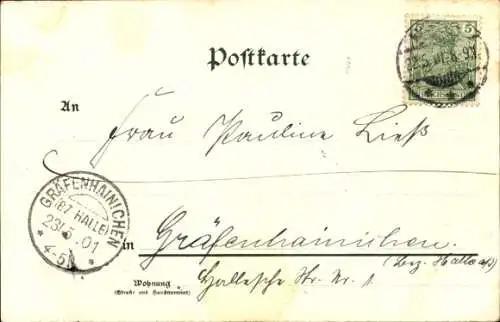 Postkarte
5 5
22.5.01.8-9V.
An
Frau Pauline Ließ
GRÄFENHAINICHEN
(BZ HALLE)
23/5.01
* 4-5V *
in Gräfenhainichen.
(Bez. Halle a/S)
Wohnung
(Straße und Hausnummer)
Hallesche Str. Nr. 1